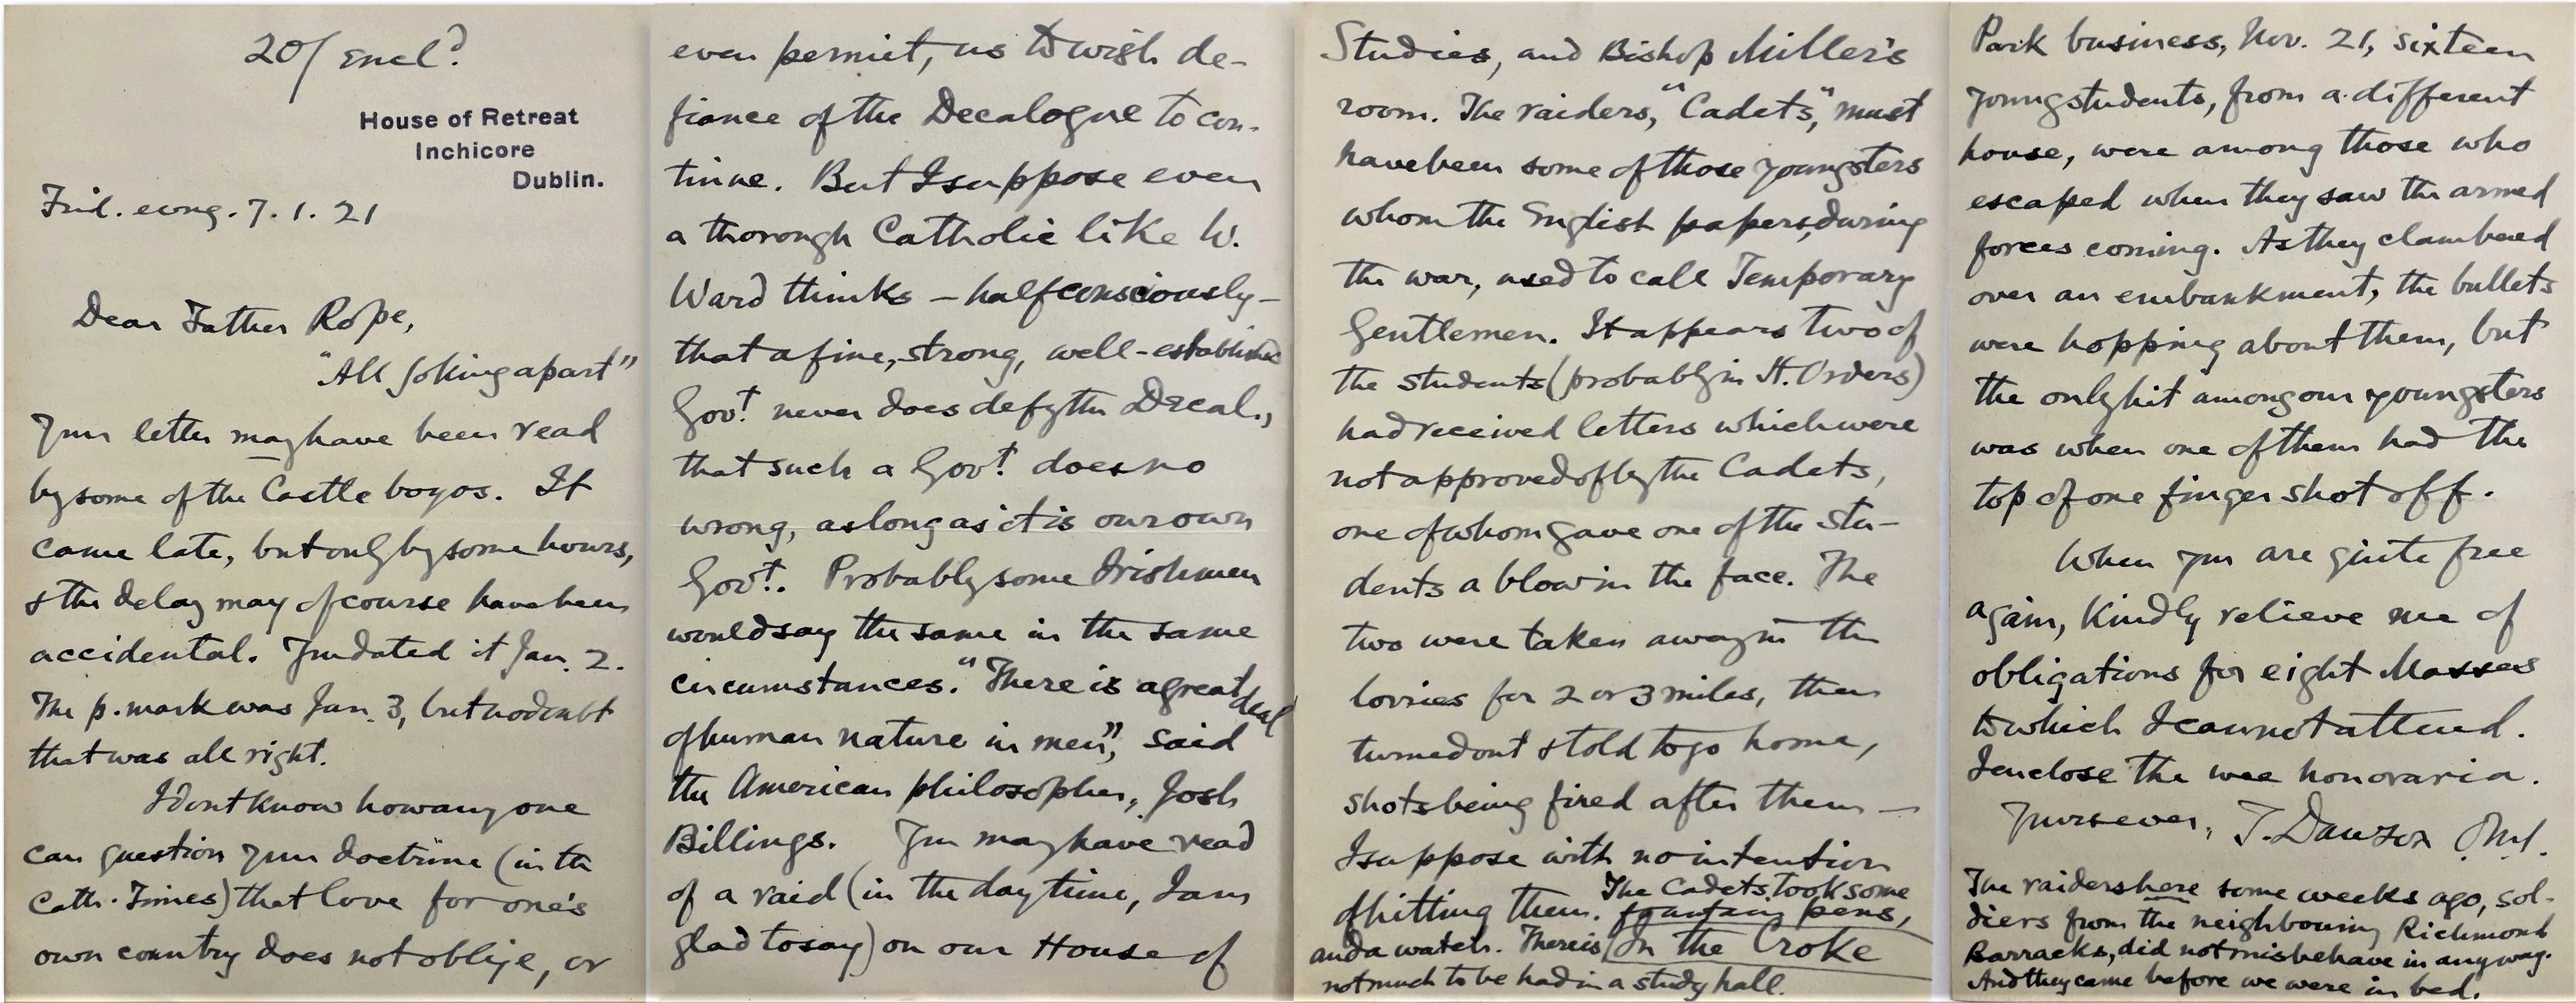 20/ Encl?
House of Retreat
Inchicore
Dublin.
Frid. evng. 7. 1. 21
Dear Father Rope,
"All joking apart"
Your letter may have been read
by some of the Castle boyos. It
came late, but only by some hours,
& the delay may of course have been
accidental. You dated it Jan. 2.
The p. mark was Jan. 3, but no doubt
that was all right.
I dont know how any one
can question your doctrine (in the
Cath. Times) that love for one's
own country does not oblige, or
even permit, us to wish de-
fiance of the Decalogue to con-
tinue. But I suppose even
a thorough Catholic like W.
Ward thinks – half consciously –
that a fine, strong, well-established
Govt. never does defy the Decal.,
that such a Govt. does no
wrong, as long as it is our own
Govt.. Probably some Irishmen
would say the same in the same
circumstances. "There is a great deal
of human nature in men", said
the American philosopher, Josh
Billings. You may have read
of a raid (in the day time, I am
glad to say) on our House of
Studies, and Bishop Miller's
room. The raiders, "Cadets," must
have been some of those youngsters
whom the English papers, during
the war, used to call Temporary
Gentlemen. It appears two of
the students (probably in H. Orders)
had received letters which were
not approved of by the Cadets,
one of whom gave one of the stu-
dents a blow in the face. The
two were taken away in the
lorries for 2 or 3 miles, then
turned out & told to go home,
shots being fired after them –
I suppose with no intention
of hitting them. The Cadets took some
fountain pens,
and a watch. There is
not much to be had in a study hall.
In the Croke
Park business, Nov. 21, sixteen
young students, from a different
house, were among those who
escaped when they saw the armed
forces coming. As they clambered
over an embankment, the bullets
were hopping about them, but
the only hit among our youngsters
was when one of them had the
top of one finger shot off.
When you are quite free
again, kindly relieve me of
obligations for eight Masses
to which I cannot attend.
I enclose the wee honoraria.
Yours ever, T. Dawson O.M.I.
The raiders here some weeks ago, sol-
diers from the neighbouring Richmond
Barracks, did not misbehave in any way.
And they came before we were in bed.